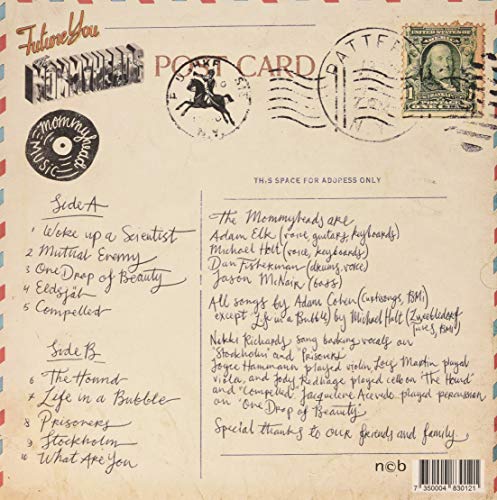 Future You
MOMMYHEADS
POST CARD
mommyhead
MUSIC
N.Y.
PATTER
N.Y.
1
THIS SPACE FOR ADDRESS ONLY
Side A
1 Woke up a Scientist
2 Mutual Enemy
3 One Drop of Beauty
4 Eldsjäl
5 Compelled
Side B
6 The Hound
7 Life in a Bubble
8 Prisoners
9 Stockholm
10 What Are You
The Mommyheads are
Adam Elk (voice, guitars, keyboards)
Michael Holt (voice, keyboards)
Dan Fisherman (drums, voice)
Jason McNair (bass)
All songs by Adam Cohen (BMI)
except Life in a Bubble) by Michael Holt (BMI)
Nikki Richards sang backing vocals on
"Stockholm" and "Prisoners"
Joyce Hammann played violin, Lois Martin played
viola, and Jody Redhage played cello on "The Hound"
and "Compelled". Jacquelene Acevedo played percussion
on "One Drop of Beauty"
Special thanks to our friends and family
n©b
7 350004 830121